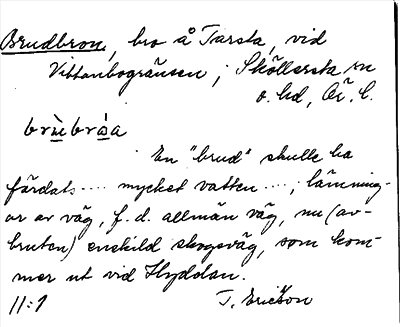 Brudbron, bro å Tarsta, vid
Vittenbogränsen; Sköllersta sn
o. hd, Ör. l.
brùbrȯ̀a
En "brud" skulle ha
färdats .... mycket vatten ....; lämning-
ar av väg, f.d. allmän väg, nu (av-
bruten) enskild skogsväg, som kom-
mer ut vid Hyddan.
11:1 T. Ericson